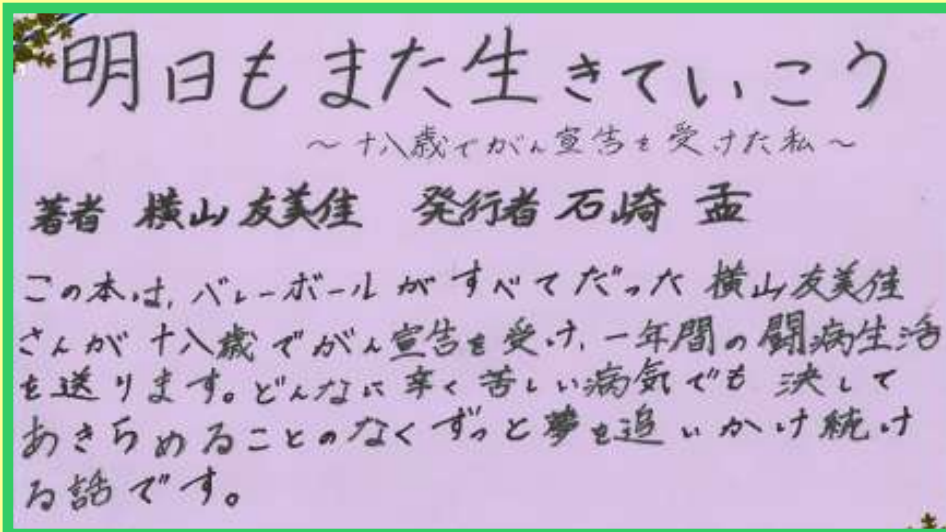 明日もまた生きていこう
～十八歳でがん宣告を受けた私～
著者 横山友美佳 発行者 石﨑 孟
この本は、バレーボールがすべてだった横山友美佳
さんが十八歳でがん宣告を受け、一年間の闘病生活
を送ります。どんなに辛く苦しい病気でも決して
あきらめることのなくずっと夢を追いかけ続け
る話です。